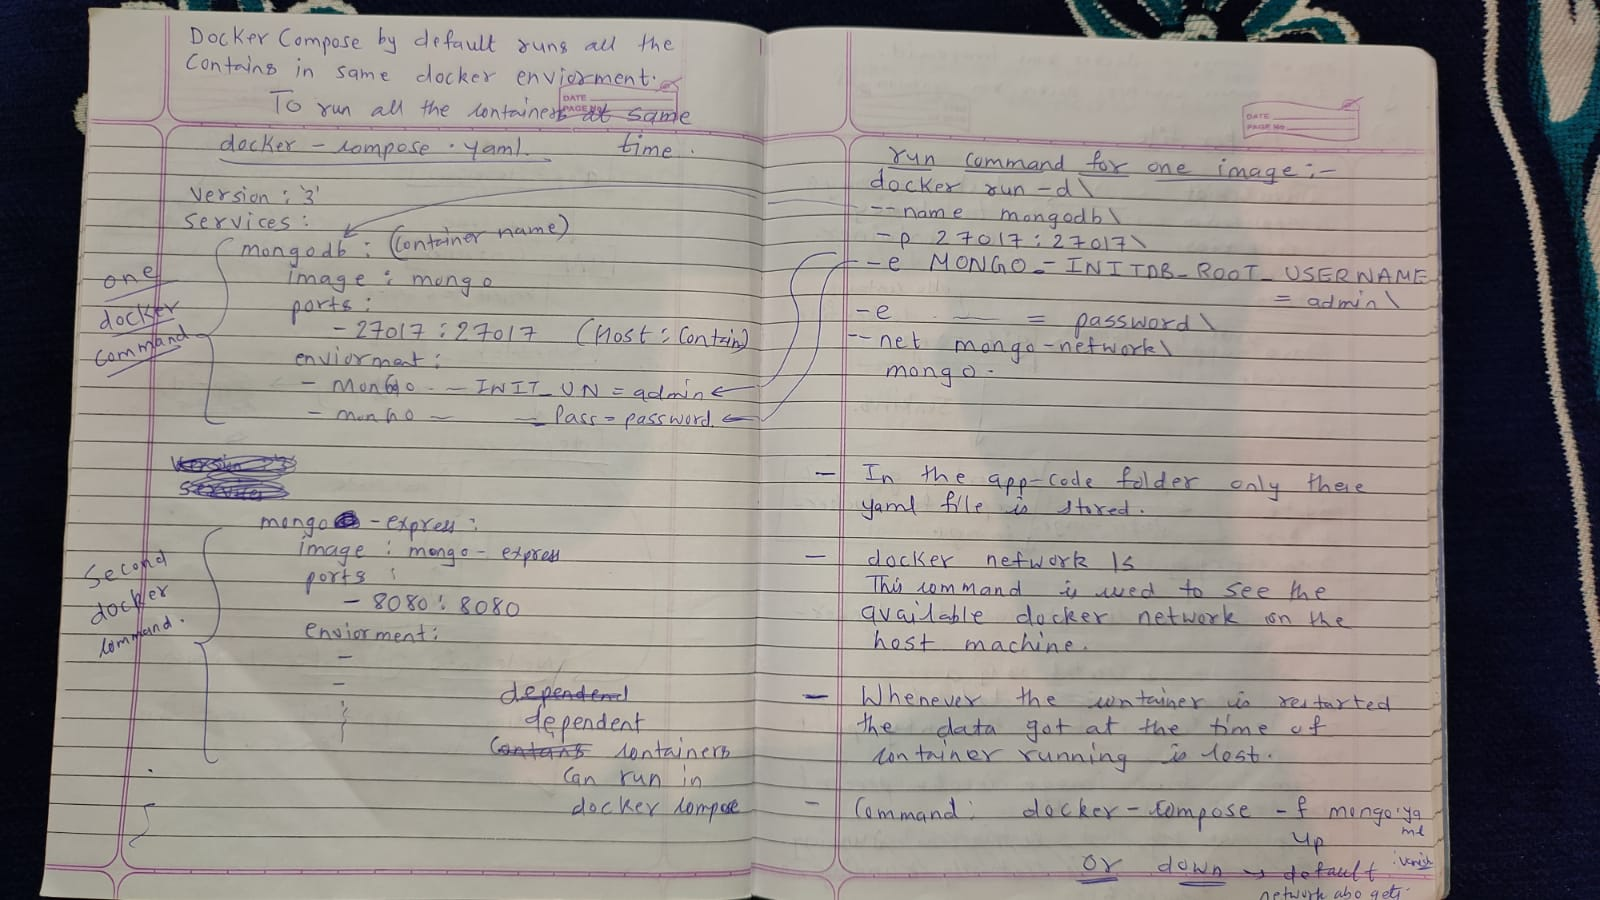 Docker Compose by default runs all the
Contains in same docker enviorment.
To run all the containers at same
time.
DATE
PAGE No
docker - compose . yaml.
Version : '3'
services :
mongodb : (Container name)
image : mongo
ports :
- 27017 : 27017 (Host : Contain)
enviorment :
- MonGo - - INIT_UN = admin
- monGo - - Pass = password.
one
docker
command
Version : '3'
Services
mongo - express :
image : mongo - express
ports :
- 8080 : 8080
enviorment :
-
-
Second
docker
command.
dependend
dependent
Contans containers
Can run in
docker compose
DATE
PAGE No
run command for one image :-
docker run -d \
--name mongodb \
-p 27017 : 27017 \
-e MONGO_-INITDB_ROOT_USERNAME
= admin \
-e — = password \
--net mongo-network \
mongo.
- In the app-code folder only these
yaml file is stored.
- docker network ls
This command is used to see the
available docker network on the
host machine.
- Whenever the container is restarted
the data got at the time of
container running is lost.
- Command : docker - compose -f mongo.ya
ml
up
or down → default
network also gets.